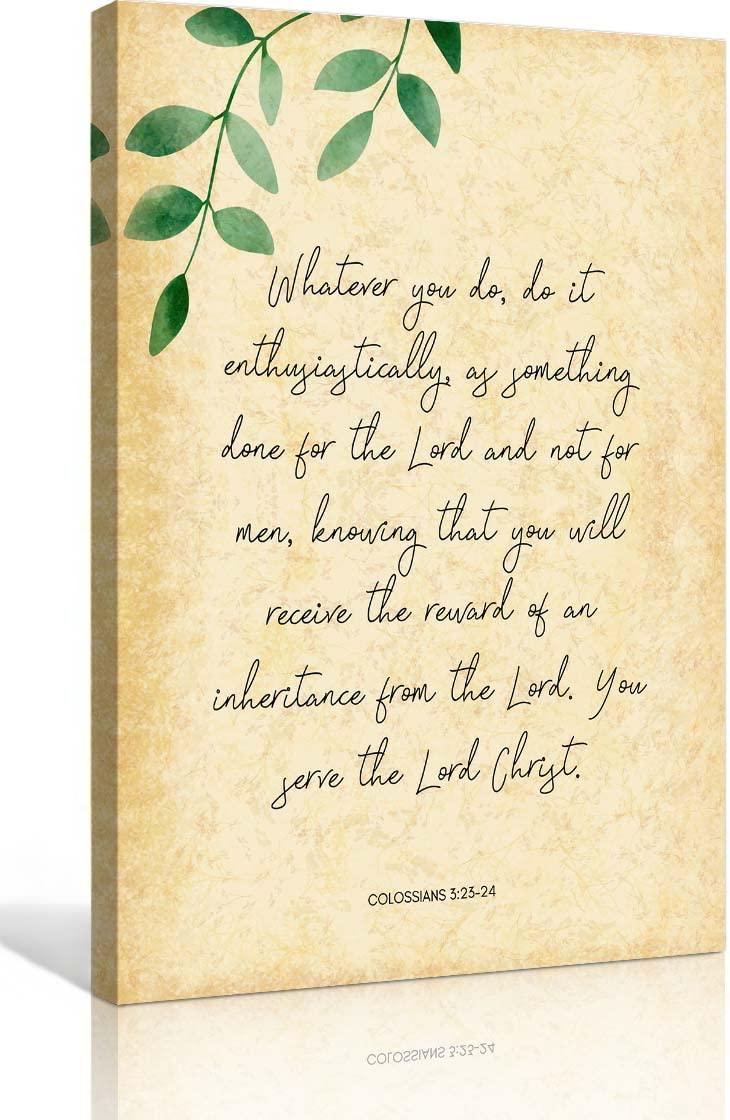 Whatever you do, do it
enthusiastically, as something
done for the Lord and not for
men, knowing that you will
receive the reward of an
inheritance from the Lord. You
serve the Lord Christ.
COLOSSIANS 3:23-24
COLOSSIANS 3:23-24